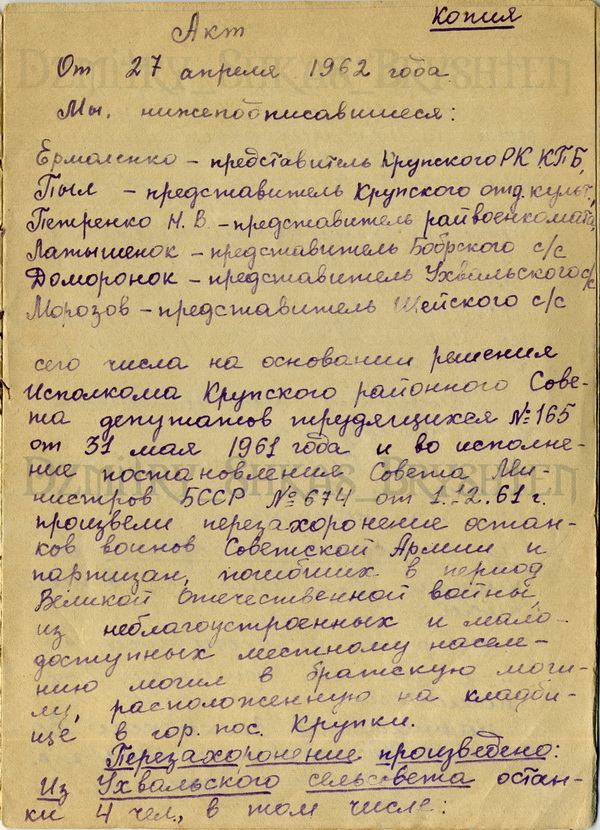 Копия
Акт
От 27 апреля 1962 года
Мы, нижеподписавшиеся:
Ермаленко – представитель Крупского РК КПБ,
Пыл – представитель Крупского отд. культ.,
Петренко Н. В. – представитель райвоенкомата,
Латышенок – представитель Бобрского с/с
Доморонок – представитель Ухвальского с/с
Морозов – представитель Шейского с/с
сего числа на основании решения
Исполкома Крупского районного Сове-
та депутатов трудящихся № 165
от 31 мая 1961 года и во исполне-
ние постановления Совета Ми-
нистров БССР № 674 от 1.12.61 г.
произвели перезахоронение остан-
ков воинов Советской Армии и
партизан, погибших в период
Великой Отечественной войны,
из неблагоустроенных и мало-
доступных местному населе-
нию могил в братскую моги-
лу, расположенную на кладби-
ще в гор. пос. Крупки.
Перезахоронение произведено:
Из Ухвальского сельсовета остан-
ки 4 чел., в том числе: